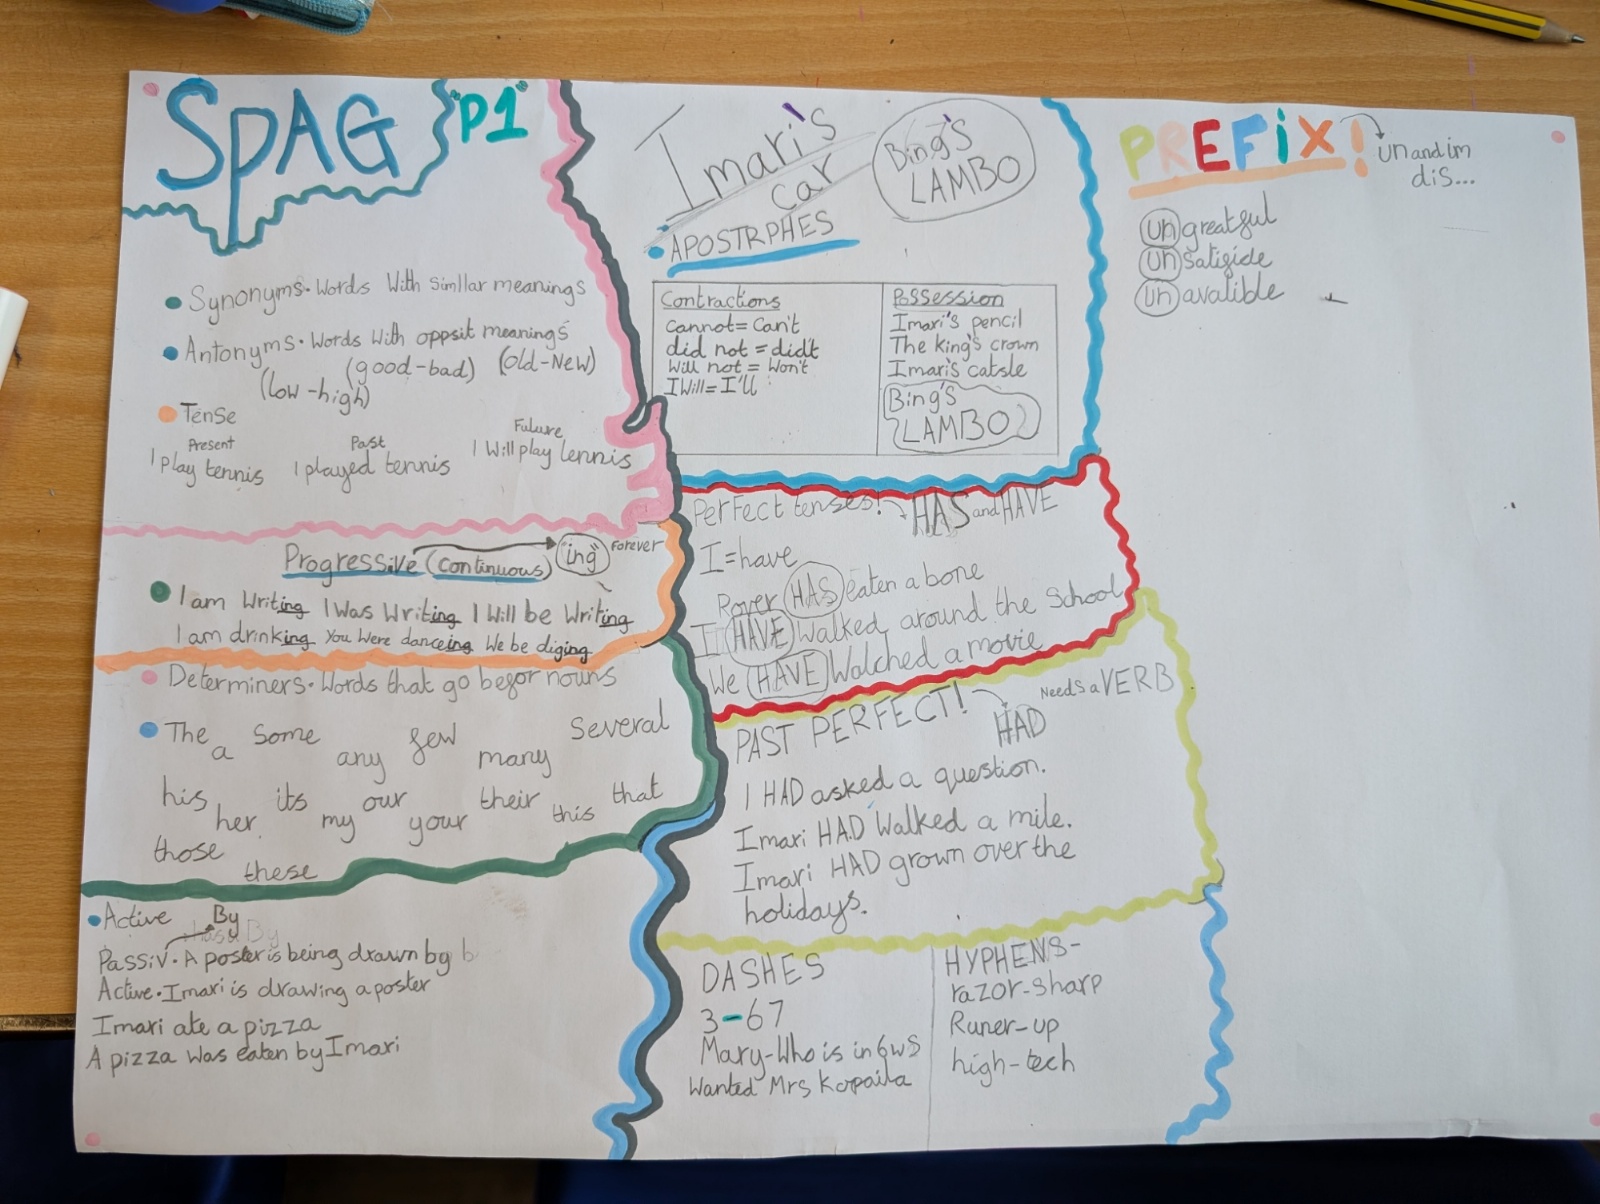 SPAG "P1"
Synonyms· Words With Simllar meanings
Antonyms· Words With oppsit meanings
(good-bad) (Old-New)
(low-high)
Tense
Present Past Future
I play tennis I played tennis I Will play tennis
Progressive (continuous) "ing" Forever
I am Writing I Was Writing I Will be Writing
I am drinking You Were danceing We be diging
Determiners· Words that go befor nouns
The a Some any few many Several
his her its my our your their this that
those these
Active By
Passiv· A poster is being drawn by b
Active· Imari is drawing a poster
Imari ate a pizza
A pizza was eaten by Imari
Imari's
car
Bing's
LAMBO
APOSTRPHES
Contractions
cannot= Can't
did not = didt
Will not = Won't
I Will= I'll
Possession
Imari's pencil
The king's crown
Imari's catsle
Bing's
LAMBO
Perfect tenses! HAS and HAVE
I=have
Rover HAS eaten a bone
I HAVE Walked around the School
We HAVE Watched a movie
PAST PERFECT! HAD Needs a VERB
I HAD asked a question.
Imari HAD Walked a mile.
Imari HAD grown over the
holidays.
DASHES
3-67
Mary-Who is in 6WS
Wanted Mrs
HYPHENS-
razor-sharp
Runer-up
high-tech
PREFIX! un and im
dis...
ungreatful
unsatifide
unavalible